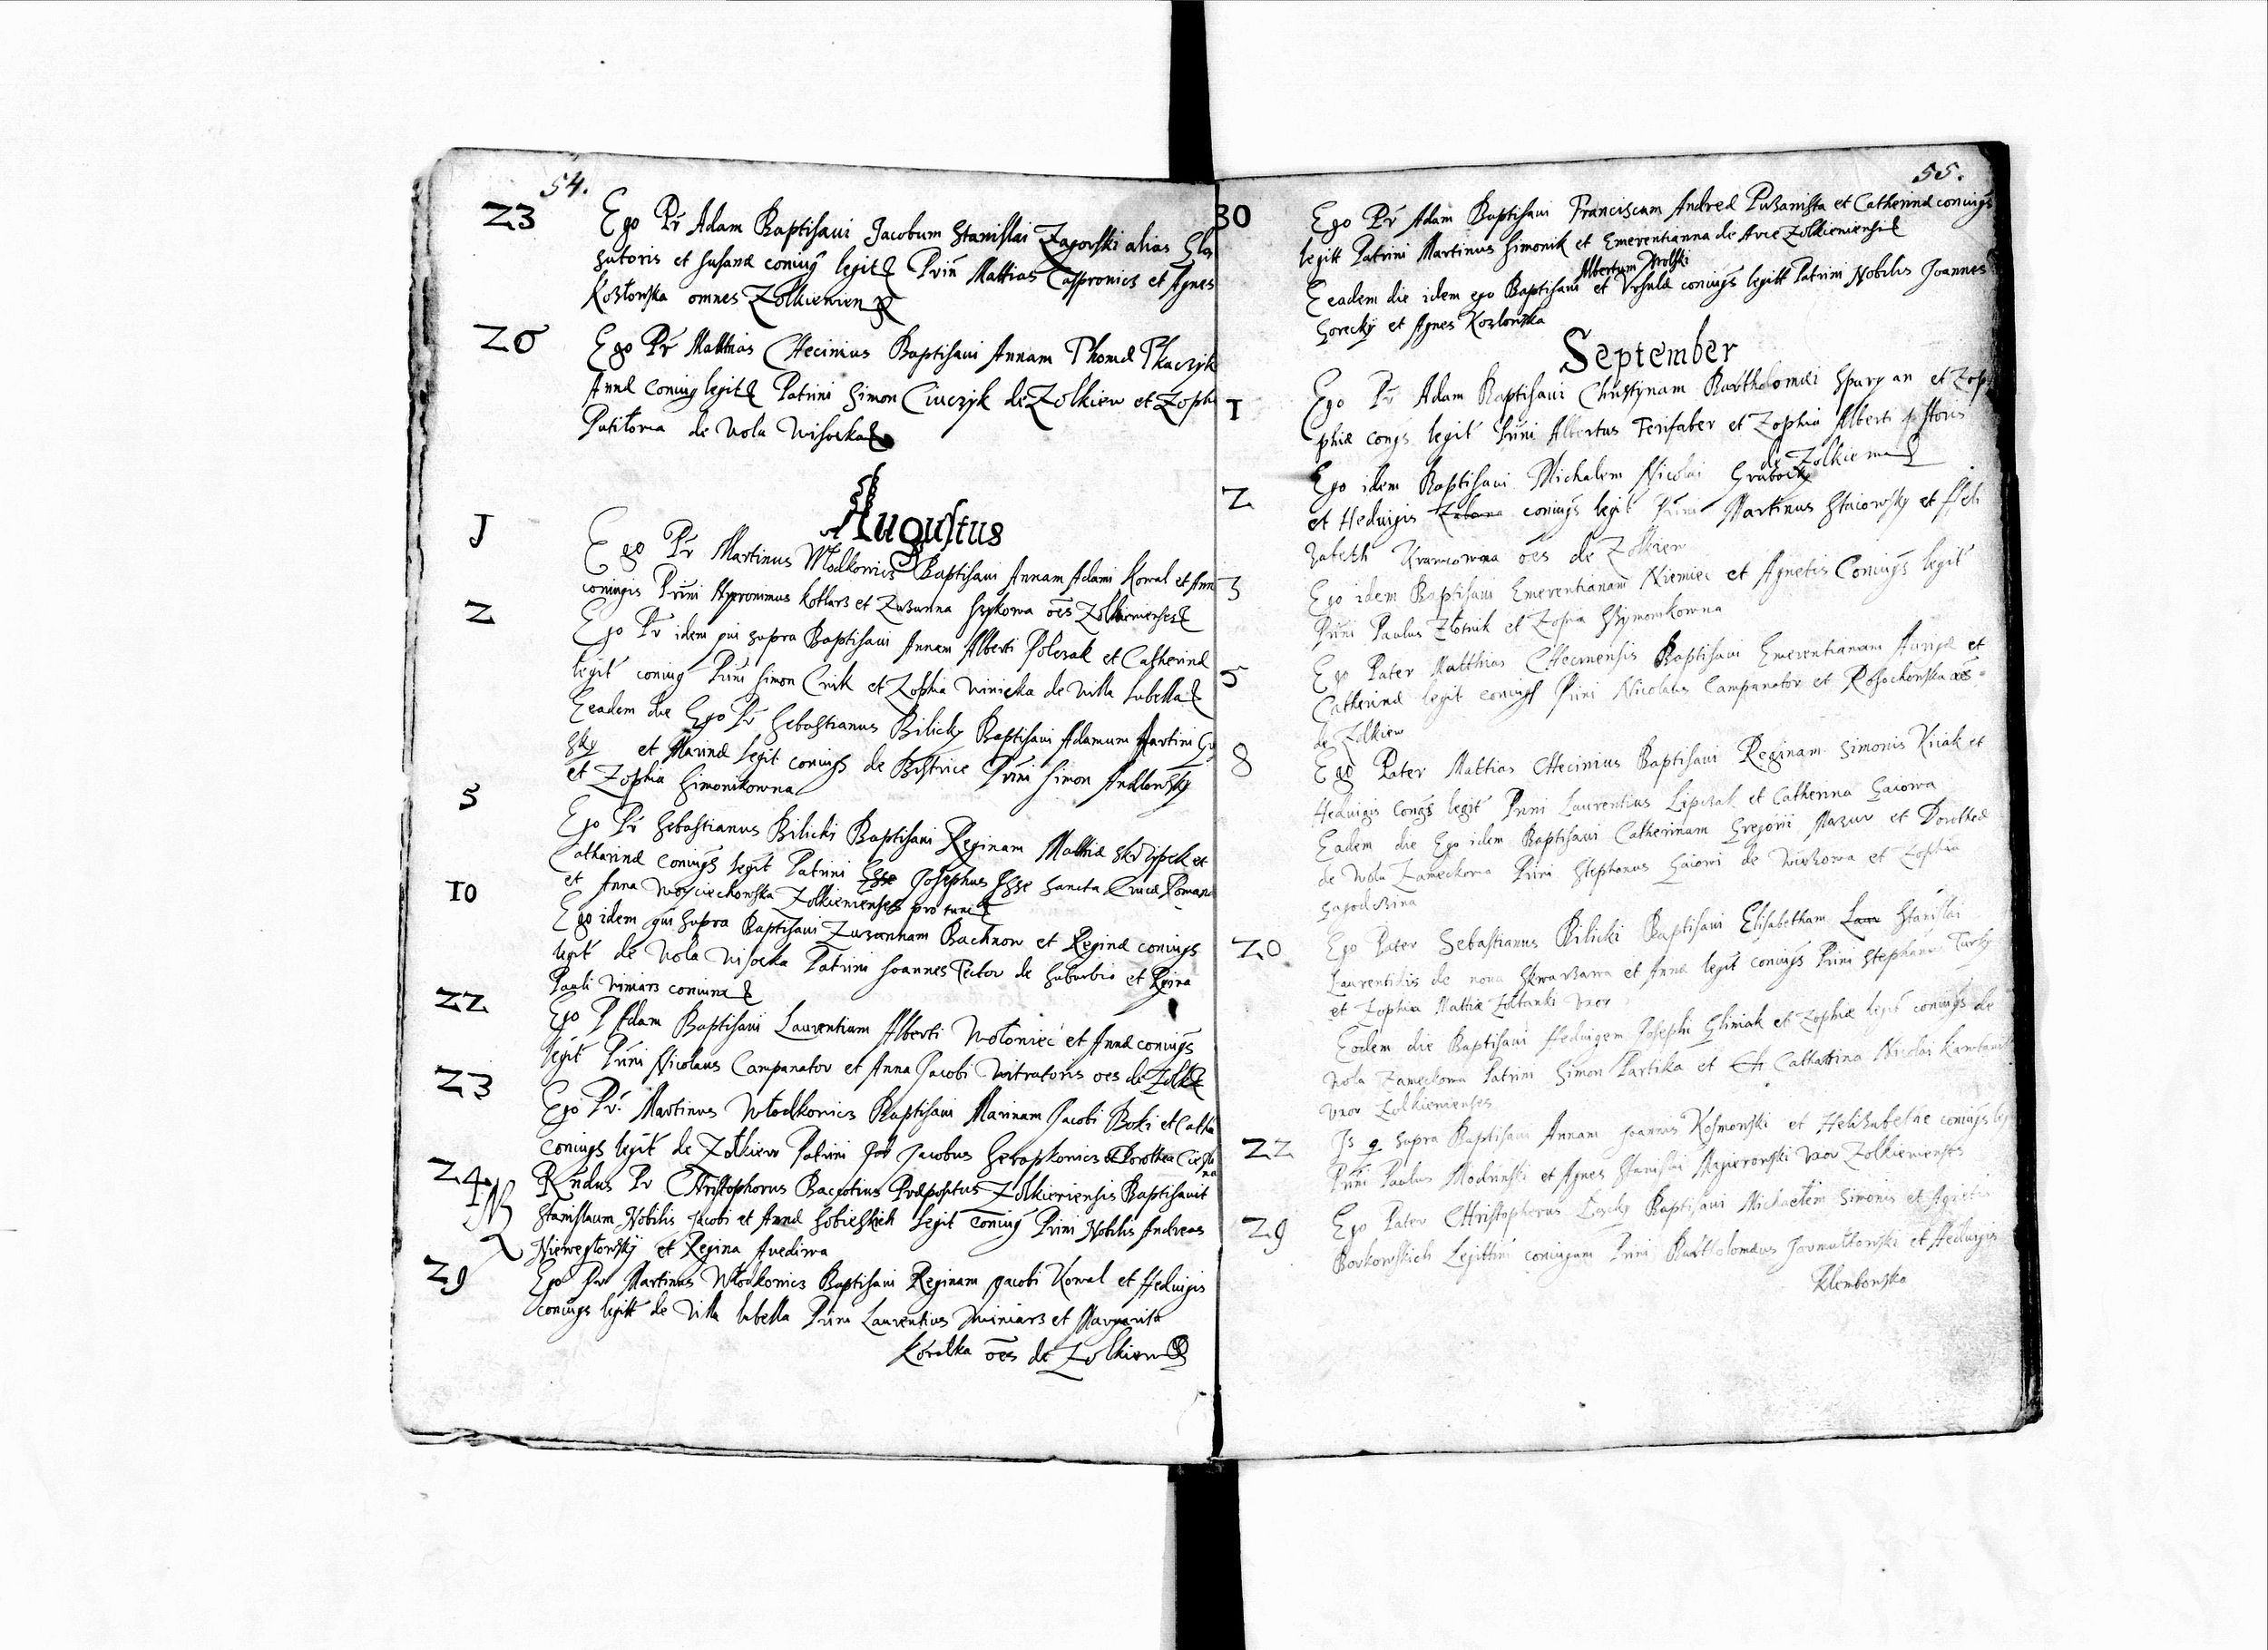 54.
23 Ego Pr Adam Baptisaui Jacobum Stanislai Zagorski alias
sutoris et Susanæ coniug legit Prini Mattias Casspronicz et Agnes
Kozłowska omnes Zolkiewien
26 Ego Pr Matthias Checinius Baptisaui Annam Thomæ Tkaczyk
Annæ coniug legit Patrini Simon Ciuczyk de Zolkiew et Zoph
de Wola Wisocka
Augustus
1 Ego Pr Martinus Włodkowicz Baptisaui Annam Adami Kowal et Ann
coniugis Prini Hyeronimus Kotlarz et Zuzanna oes Zolkiewienses
2 Ego Pr idem qui supra Baptisaui Annam Alberti Polczak et Catherinæ
legit coniug Prini Simon Cnik et Zophia Winicka de Villa Lubella
Eeadem die Ego Pr Sebastianus Bilicky Baptisaui Adamum Martini
sky et Marinæ legit coniugs de Bistrice Prini Simon
et Zophia Simonikowna
5 Ego Pr Sebastianus Bilicki Baptisaui Reginam Mattiæ Skrzypek et
Catharinæ coniugs legit Patrini Josephus Sancta Cruce
et Anna Woyciechowska Zolkiewienses pro tunc
10 Ego idem qui supra Baptisaui Zuzannam Bachnow et Reginæ coniugs
legit de Wola Wisocka Patrini Joannes Pictor de Suburbio et Regina
Pauli Winiarz coniunx
22 Ego P Adam Baptisaui Laurentium Alberti Wołoniec et Annæ coniugs
legit Prini Nicolaus Campanator et Anna Jacobi Vitratoris oes de Zolk
23 Ego Pr. Martinus Włodkowicz Baptisaui Marinam Jacobi Boki et Catha
coniugs legit de Zołkiew Patrini Jacobus et Dorothea
24 Rndus Pr Christophorus Præpositus Zolkieviensis Baptisauit
Stanislaum Nobilis Jacobi et Annæ Sobieskich legit coniug Prini Nobilis Andreas
et Regina
29 Ego Pr Martinus Włodkowicz Baptisaui Reginam Jacobi Kowal et Hedwigis
coniugs legitt de Villa lubella Prini Laurentius Winiarz et Margarita
Koralka oes de Zolkiew
55.
30 Ego Pr Adam Baptisaui Franciscum Andreæ Puzanista et Catherinæ coniugs
legitt Patrini Martinus Simonik et Emerentianna de Arce Zolkiewiensi
Albertum Wolski
Eeadem die idem ego Baptisaui et Vrsulæ coniugs legitt Patrini Nobilis Joannes
Gorecky et Agnes Kozlowska
September
1 Ego Pr Adam Baptisaui Christynam Bartholomæi et Zop
phiæ congs legit Prini Albertus Ferifaber et Zophia Alberti pistoris
de Zolkiew
2 Ego idem Baptisaui Michalem Nicolai Grabocky
et Hedwigis coniugs legit Prini Martinus et
zabeth oes de Zolkiew
3 Ego idem Baptisaui Emerentianam Niemiec et Agnetis Coniugs legit
Prini Paulus Złotnik et Zofia Szymonkowna
5 Ego Pater Matthias Baptisaui Emerentianam et
Catherinæ legit coniugs Prini Nicolaus Campanator et oes
de Zolkiew
8 Ego Pater Mattias Checinius Baptisaui Reginam Simonis Kiiak et
Hedwigis Congs legit Prini Laurentius Lipczak et Catherina Gaiowa
Eadem die Ego idem Baptisaui Catherinam Gregorii Mazur et Dorotheæ
de Wola Zameckowa Prini Stephanus Gaiowi de et Zophia
20 Ego Pater Sebastianus Bilicki Baptisaui Elisabetham Stanislai
de noua Skwarzawa et Annæ legit coniugs Prini Stephanus Turky
et Zophia Mattiæ Zoltanki vxor
Eodem die Baptisaui Hedwigem Josephi Gliniak et Zophiæ legit coniugs de
Wola Zameckowa Patrini Simon Partika et Catharina Nicolai
vxor Zolkiewienses
22 Is q supra Baptisaui Annam Joannis Kosmowski et Helizabethæ coniugs
Prini Paulus et Agnes Stanislai Magierowski vxor Zolkiewienses
29 Ego Pater Christophorus Baptisaui Michaelem Simonis et Agnetis
Borkowskich Legittim coniugum Prini Bartholomæus Jarmułtowski et Hedwigis
Klembowska